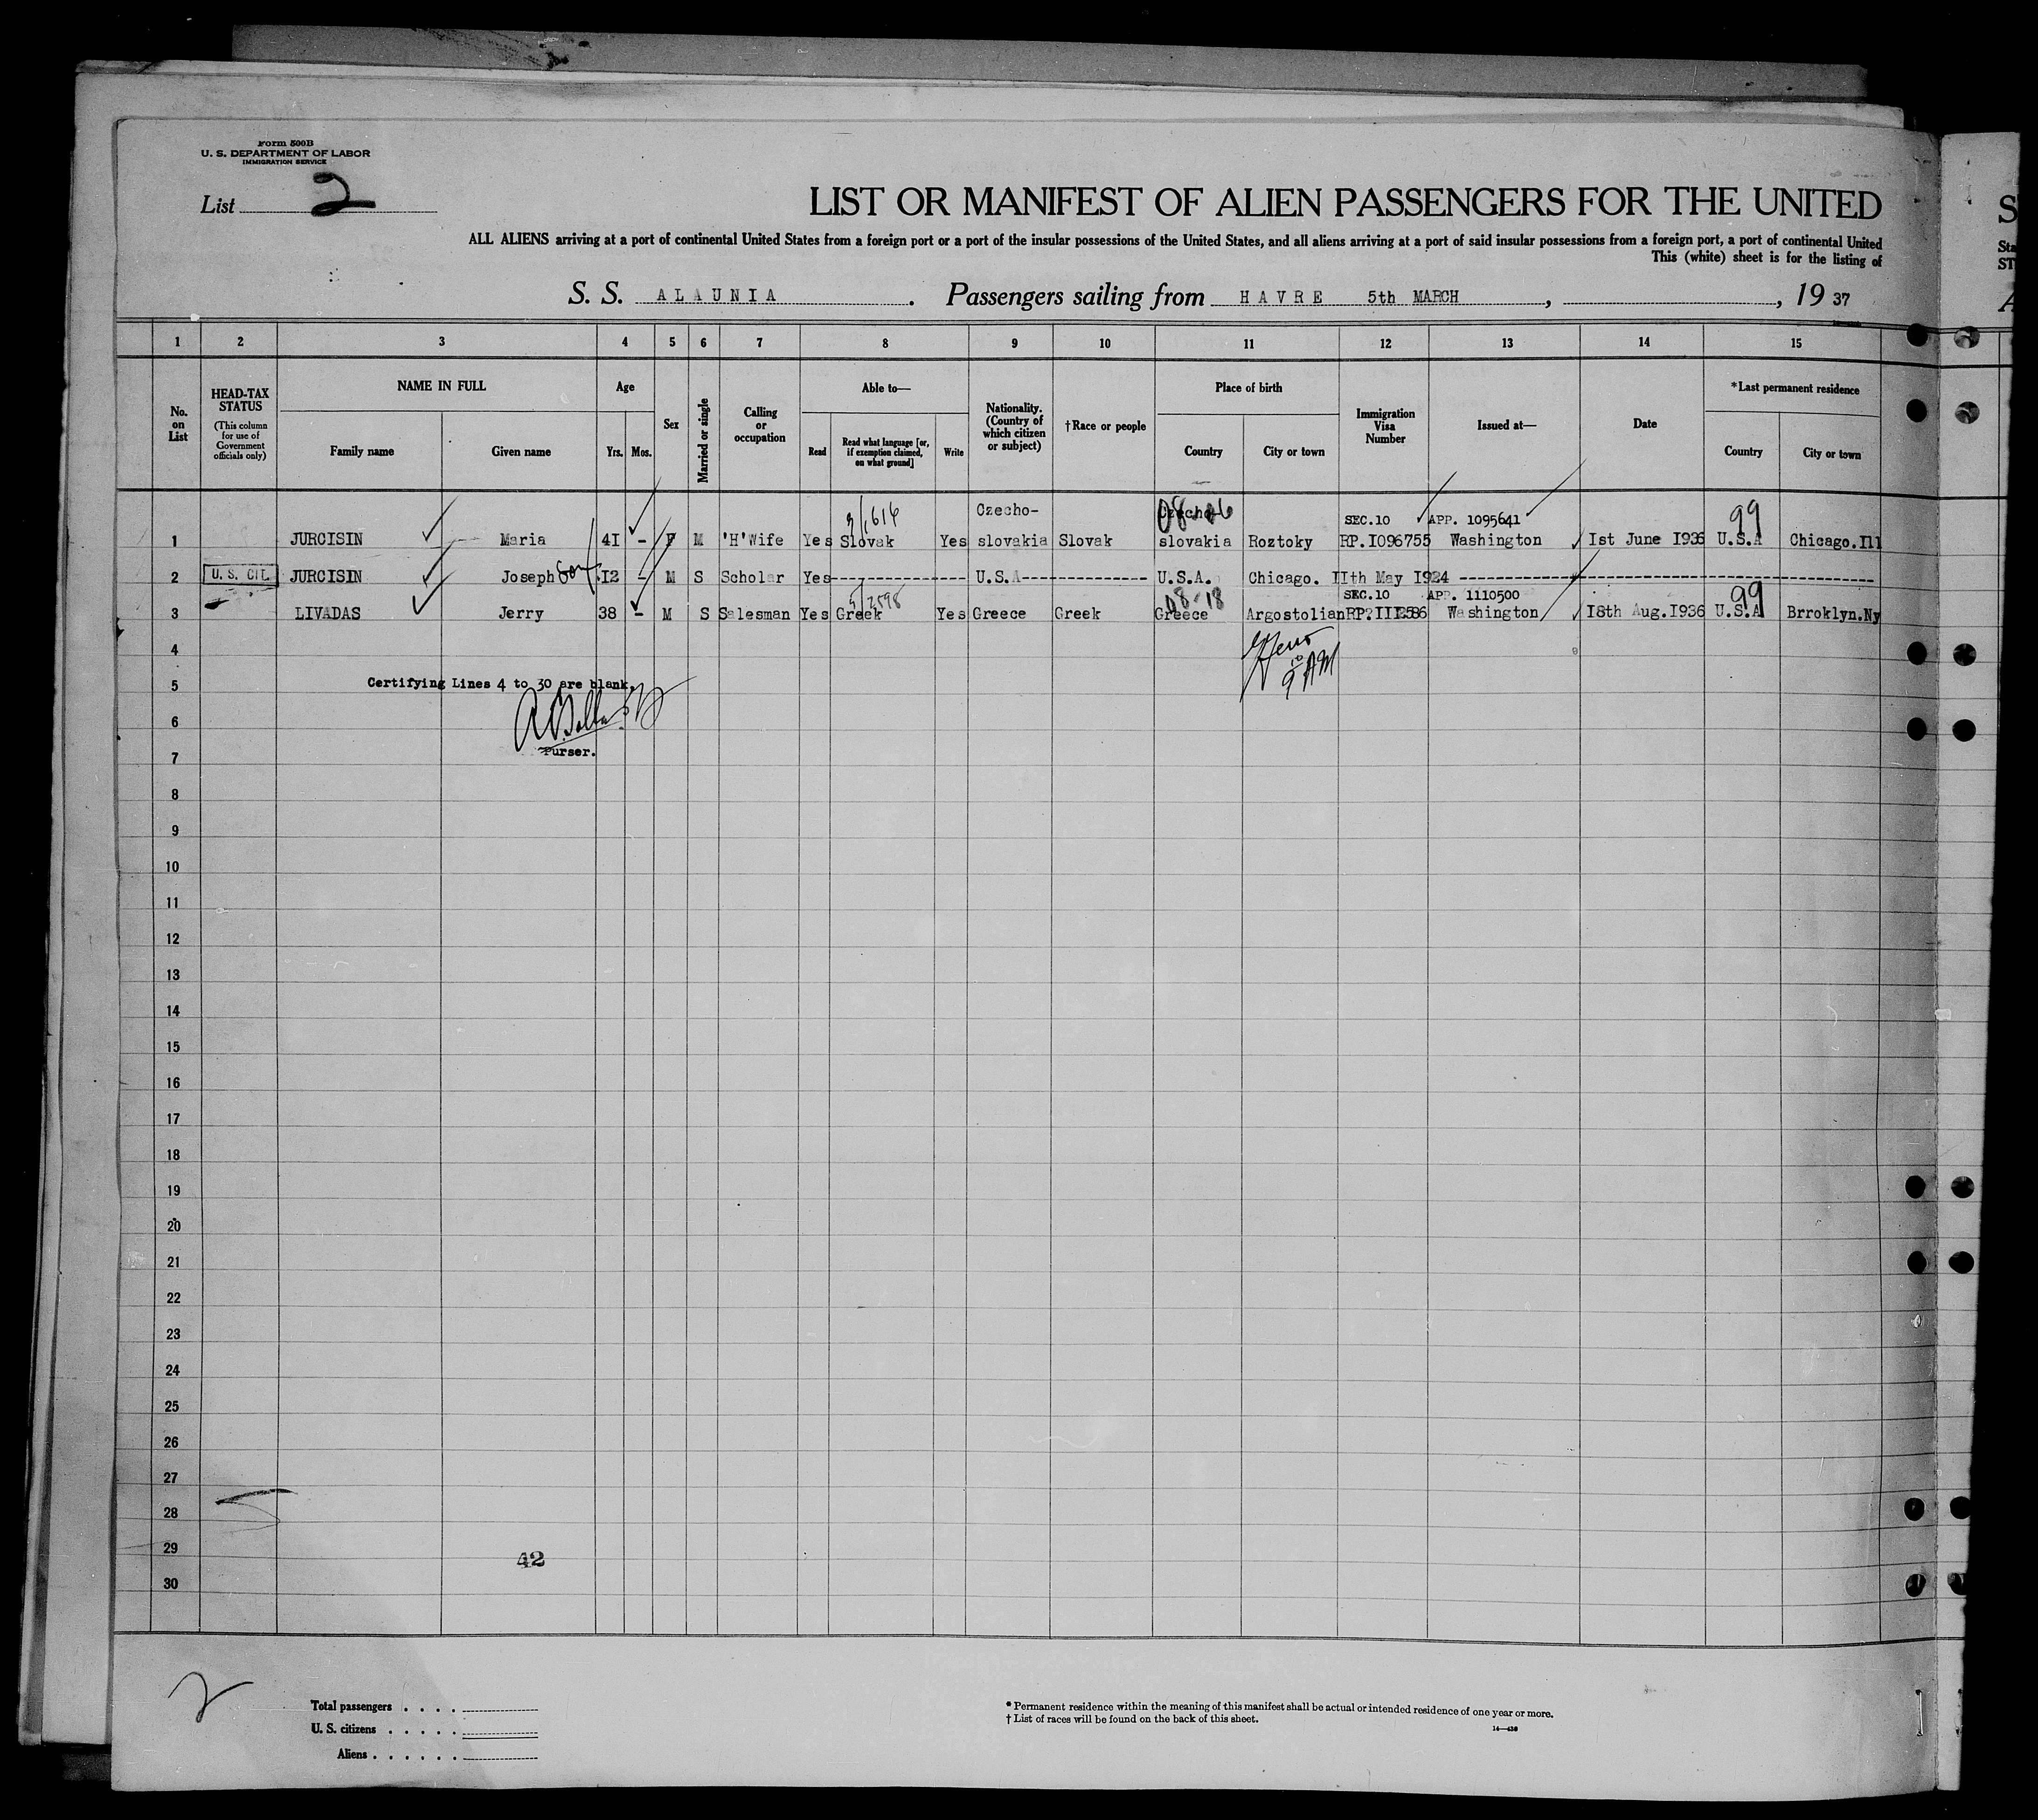 Form 500B
U. S. DEPARTMENT OF LABOR
IMMIGRATION SERVICE
List 2
LIST OR MANIFEST OF ALIEN PASSENGERS FOR THE UNITED
S
ALL ALIENS arriving at a port of continental United States from a foreign port or a port of the insular possessions of the United States, and all aliens arriving at a port of said insular possessions from a foreign port, a port of continental United
Sta
This (white) sheet is for the listing of
ST
S. S. ALAUNIA. Passengers sailing from HAVRE 5th MARCH, , 19 37
A
1 2 3 4 5 6 7 8 9 10 11 12 13 14 15
No. on List
HEAD-TAX STATUS (This column for use of Government officials only)
NAME IN FULL
Family name Given name
Age
Yrs. Mos.
Sex
Married or single
Calling or occupation
Able to—
Read Read what language [or, if exemption claimed, on what ground] Write
Nationality. (Country of which citizen or subject)
†Race or people
Place of birth
Country City or town
Immigration Visa Number
Issued at—
Date
*Last permanent residence
Country City or town
3/616 Czecho- Czecho- 08-26 SEC.10 APP. 1095641 99
1 JURCISIN Maria 4I - F M 'H'Wife Yes Slovak Yes slovakia Slovak slovakia Roztoky RP.I096755 Washington Ist June I936 U.S.A Chicago.Ill
2 U. S. CIT. JURCISIN Joseph Son I2 - M S Scholar Yes--------------- U.S.A------------- U.S.A. Chicago. IIth May I924 ------------------------------
5/2598 08-18 SEC.10 APP. 1110500 99
3 LIVADAS Jerry 38 - M S Salesman Yes Greek Yes Greece Greek Greece Argostolian RP. Washington I8th Aug.I936 U.S.A Brroklyn.Ny
4
9 AM
5 Certifying Lines 4 to 30 are blank.
6
Purser.
7
8
9
10
11
12
13
14
15
16
17
18
19
20
21
22
23
24
25
26
27
28
29
42
30
2
Total passengers . . . .
U. S. citizens . . . . .
Aliens . . . . . .
* Permanent residence within the meaning of this manifest shall be actual or intended residence of one year or more.
† List of races will be found on the back of this sheet.
14—436